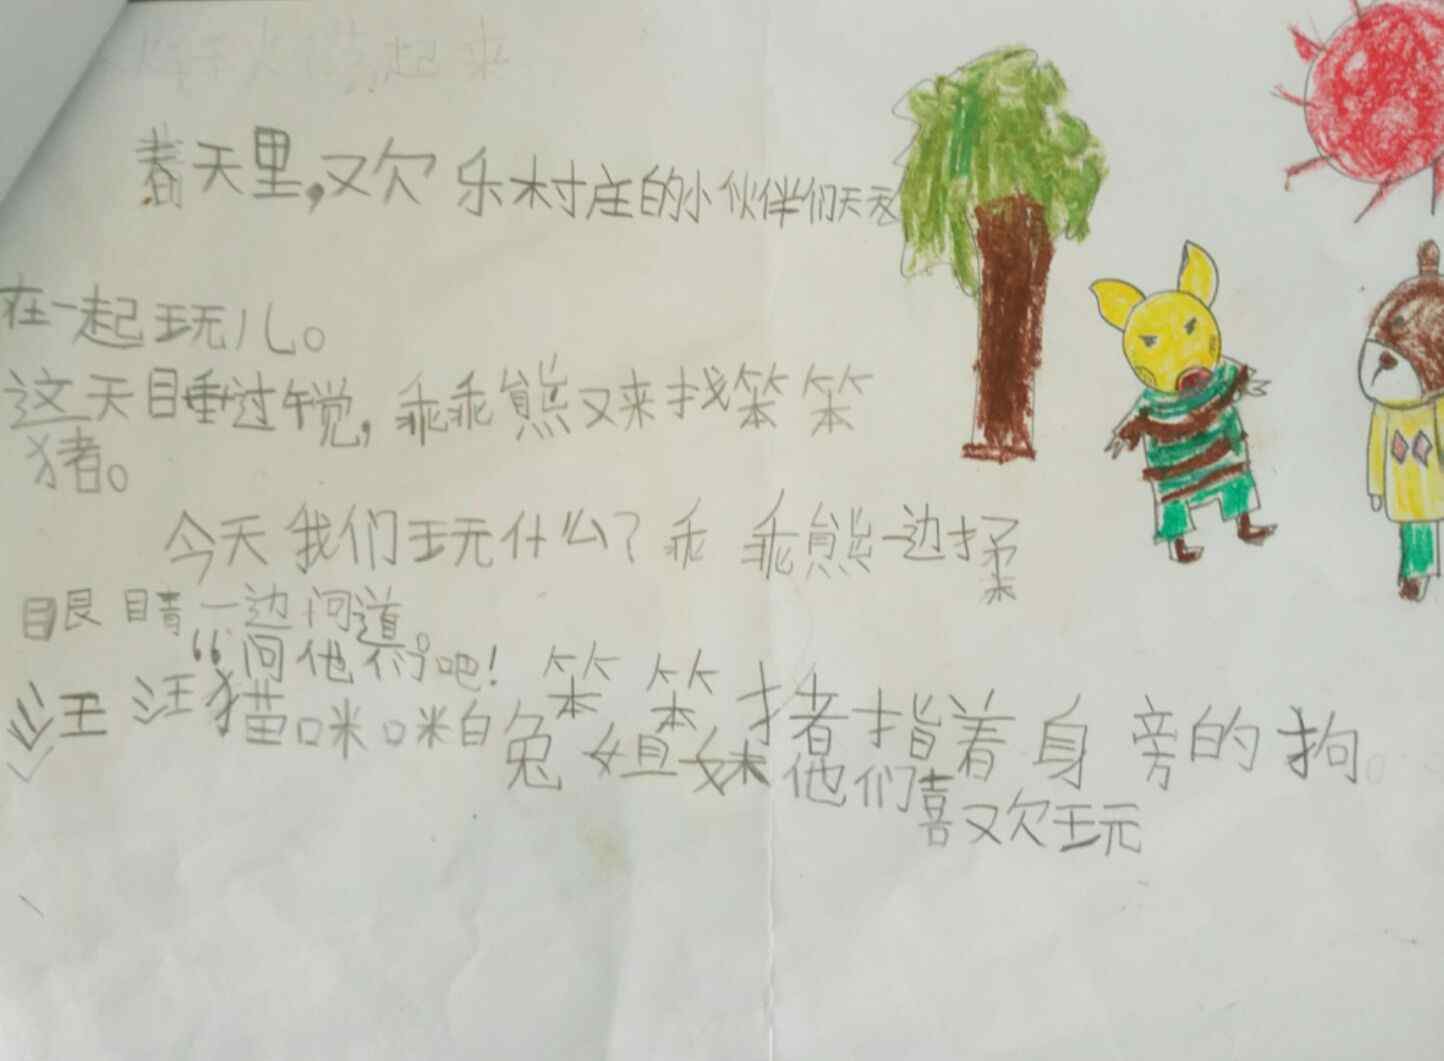 起来
春天里,欢乐村庄的小伙伴们天天
在一起玩儿。
这天睡过午觉,乖乖熊又来找笨笨
猪。
今天我们玩什么?乖乖熊一边揉
眼睛一边问道。
“问他们吧!笨笨猪指着身旁的狗
汪汪猫咪咪白兔姐妹他们喜欢玩